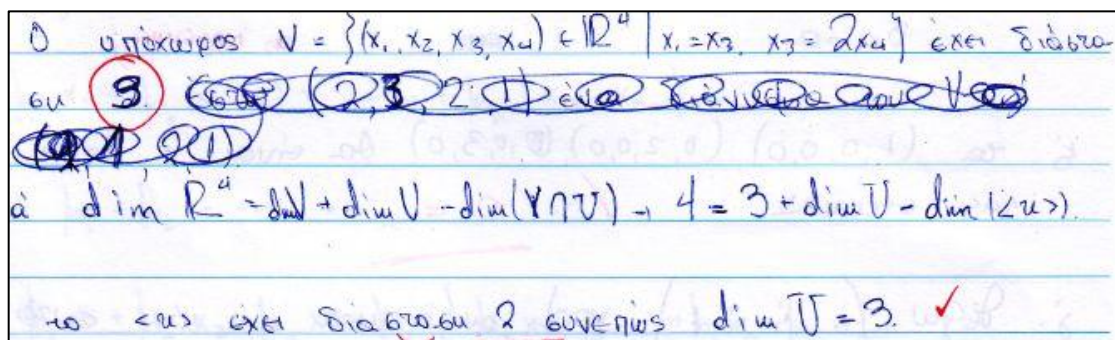 Ο υπόχωρος V = {(x₁, x₂, x₃, x₄) ∈ ℝ⁴ | x₁ = x₃, x₃ = 2x₄} έχει διάστα
ση 3.
ά dim ℝ⁴ = dimV + dim U - dim(V∩U) → 4 = 3 + dim U - dim(<u>).
το <u> έχει διάσταση 2 συνεπώς dim U = 3. ✓